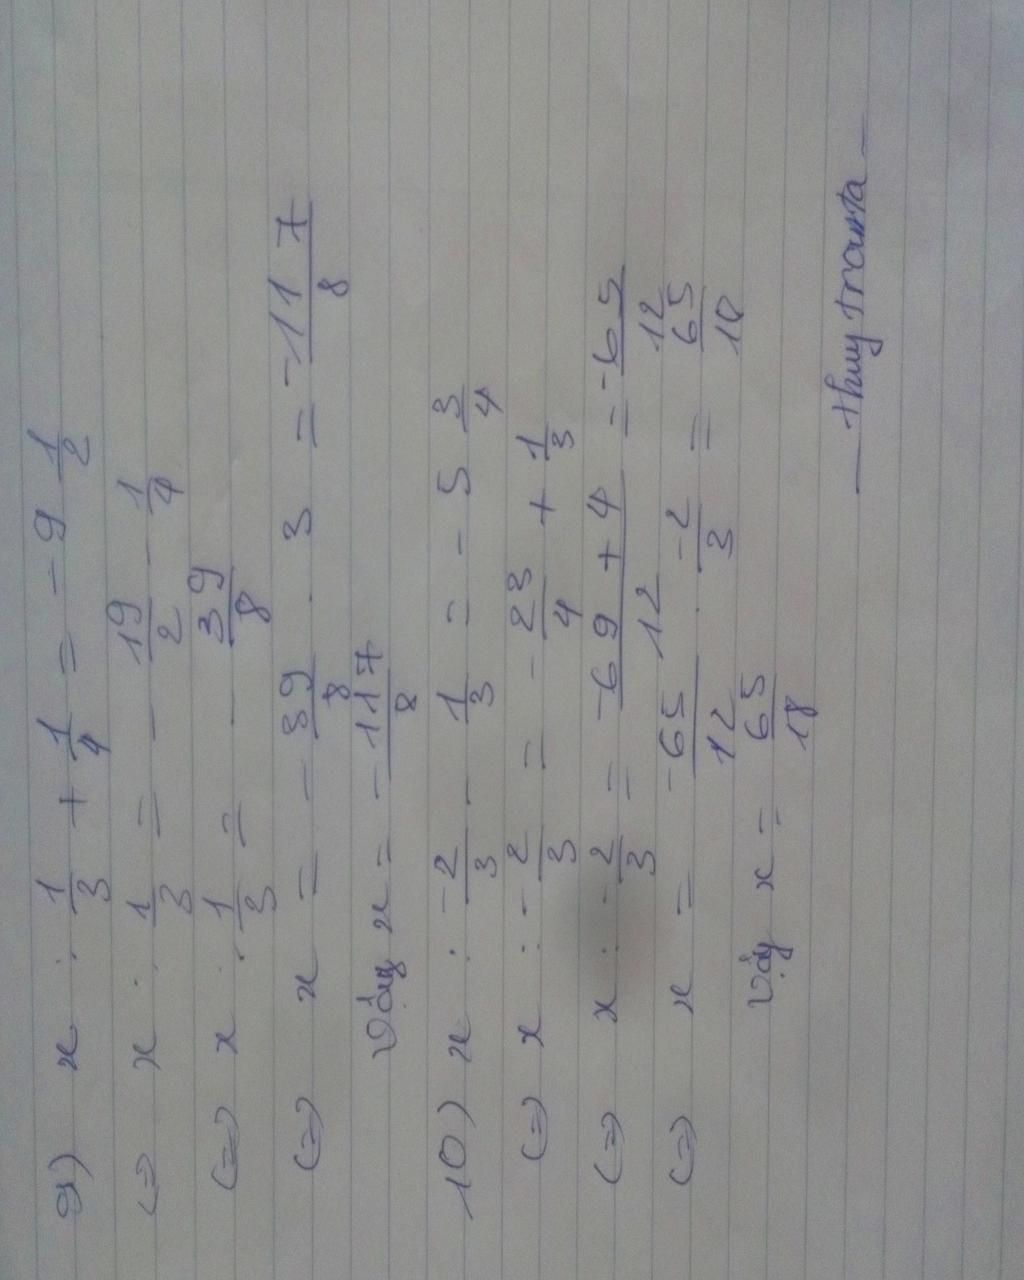 9) x . 1/3 + 1/4 = - 9 1/2
<=> x . 1/3 = - 19/2 - 1/4
<=> x . 1/3 = - 39/8
<=> x = - 39/8 . 3 = -117/8
Vậy x = -117/8
10) x : -2/3 - 1/3 = - 5 3/4
<=> x : -2/3 = - 23/4 + 1/3
<=> x : -2/3 = -69 + 4/12 = -65/12
<=> x = -65/12 . -2/3 = 65/18
Vậy x = 65/18